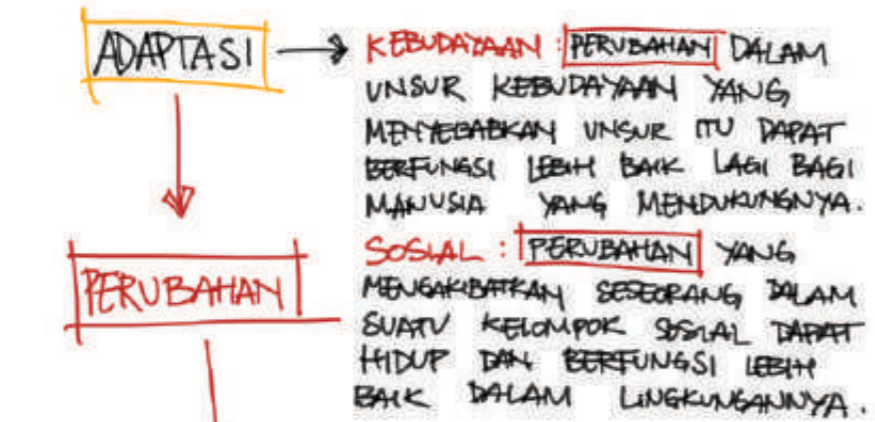 ADAPTASI
KEBUDAYAAN : PERUBAHAN DALAM
UNSUR KEBUDAYAAN YANG
MENYEBABKAN UNSUR ITU DAPAT
BERFUNGSI LEBIH BAIK LAGI BAGI
MANUSIA YANG MENDUKUNGNYA.
PERUBAHAN
SOSIAL : PERUBAHAN YANG
MENGAKIBATKAN SESEORANG DALAM
SUATU KELOMPOK SOSIAL DAPAT
HIDUP DAN BERFUNGSI LEBIH
BAIK DALAM LINGKUNGANNYA.